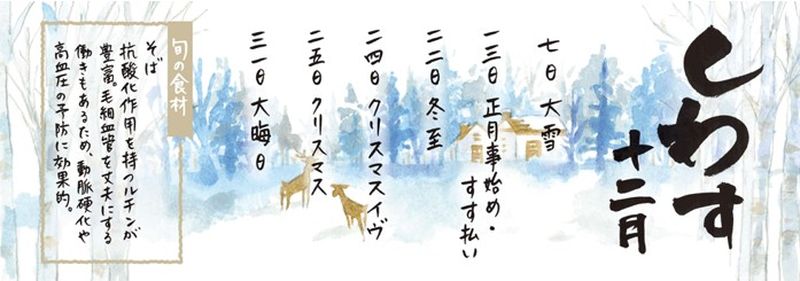 しわす
十二月
七日 大雪
一三日 正月事始め・
すす払い
二二日 冬至
二四日 クリスマスイヴ
二五日 クリスマス
三一日 大晦日
旬の食材
そば
抗酸化作用を持つルチンが
豊富。毛細血管を丈夫にする
働きもあるため、動脈硬化や
高血圧の予防に効果的。